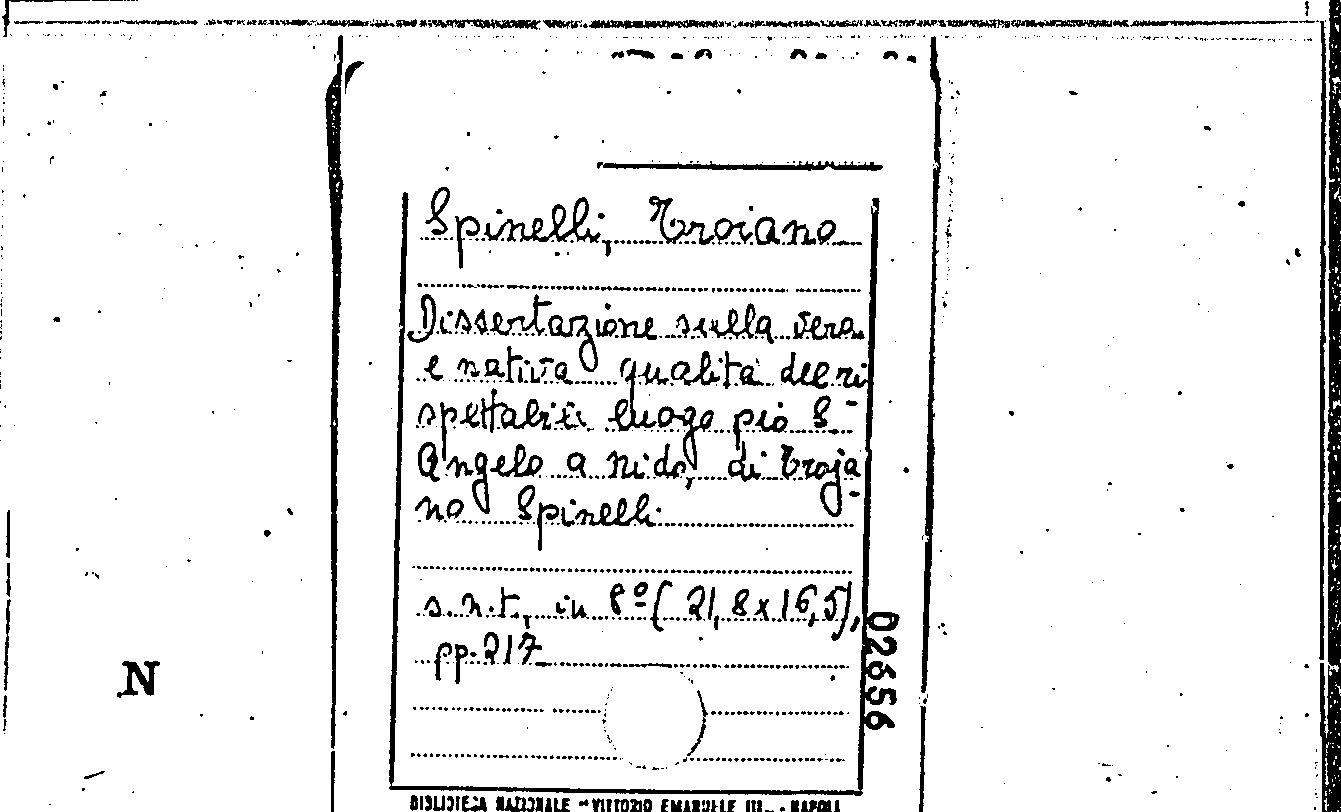 Spinelli, Troiano
Dissertazione sulla vera
e nativa qualità del ri
spettabile luogo pio S.
Angelo a nido, di Troja-
no Spinelli.
s.n.t., in 8º (21,8x16,5),
pp. 217
02656
N
BIBLIOTECA NAZIONALE "VITTORIO EMANUELE III" - NAPOLI